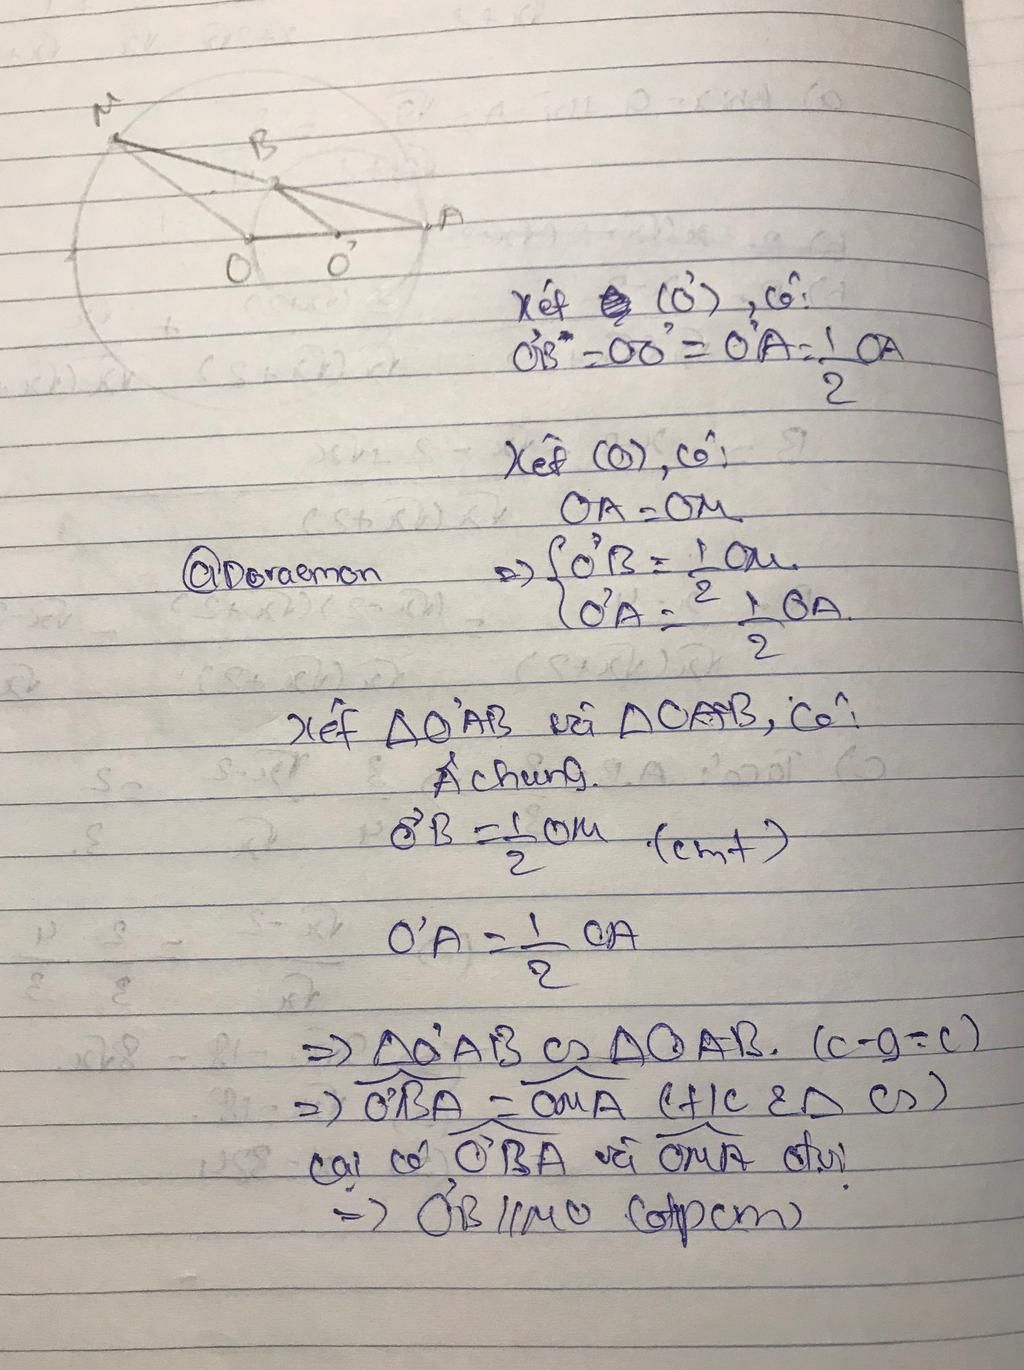 M
B
A
O
O'
Xét (O'), có:
O'B = OO' = O'A = 1/2 OA
Xét (O), có:
OA = OM
@Doraemon
=> { O'B = 1/2 OM.
O'A = 1/2 OA.
Xét ΔO'AB và ΔOAB, có:
Â chung.
O'B = 1/2 OM (cmt)
O'A = 1/2 OA
=> ΔO'AB ∽ ΔOAB. (c-g-c)
=> O'BA = OMA (t/c 2Δ ∽)
Lại có O'BA và OMA đ.vị
=> O'B // MO (đpcm)